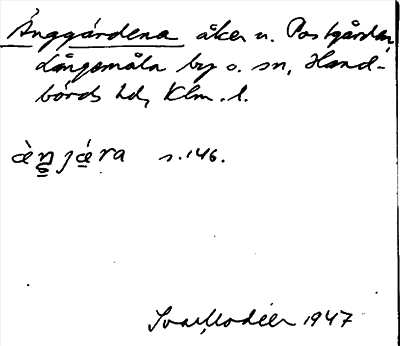 Änggärdena åker u. Postgården,
Långemåla by o. sn, Hand-
börds hd, Klm. l.
æ̀ŋjæ̀ra s. 146.
Ivar Modéer 1947